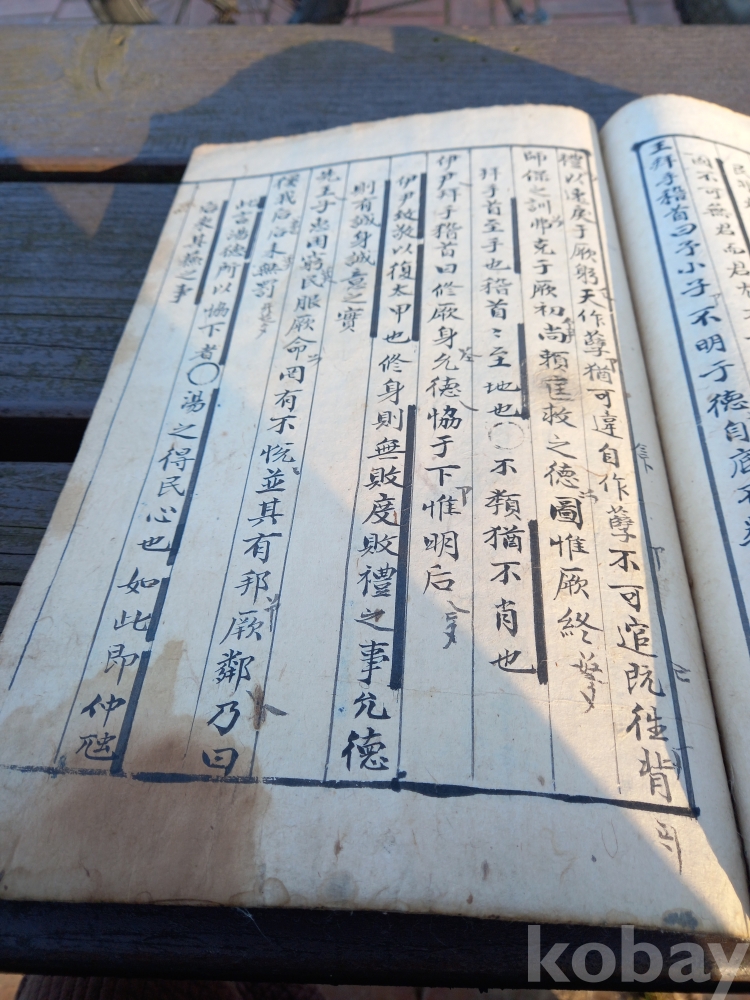 不可無君
王拜手稽首曰予小子不明于德自底不
禮以速戾于厥躬天作孽猶可違自作孽不可逭既往背
師保之訓弗克于厥初尚賴匡救之德圖惟厥終
拜手首至手也稽首〻至地也〇不類猶不肖也
伊尹拜手稽首曰修厥身允德恊于下惟明后
伊尹致敬以復太甲也修身則無敗度敗禮之事允德
則有誠身誠意之實
先王子惠困窮民服厥命罔有不悅並其有邦厥鄰乃曰
徯我后后來無罰
此言湯德所以恊下者〇湯之得民心也如此即仲虺
后來其蘇之事
kobay